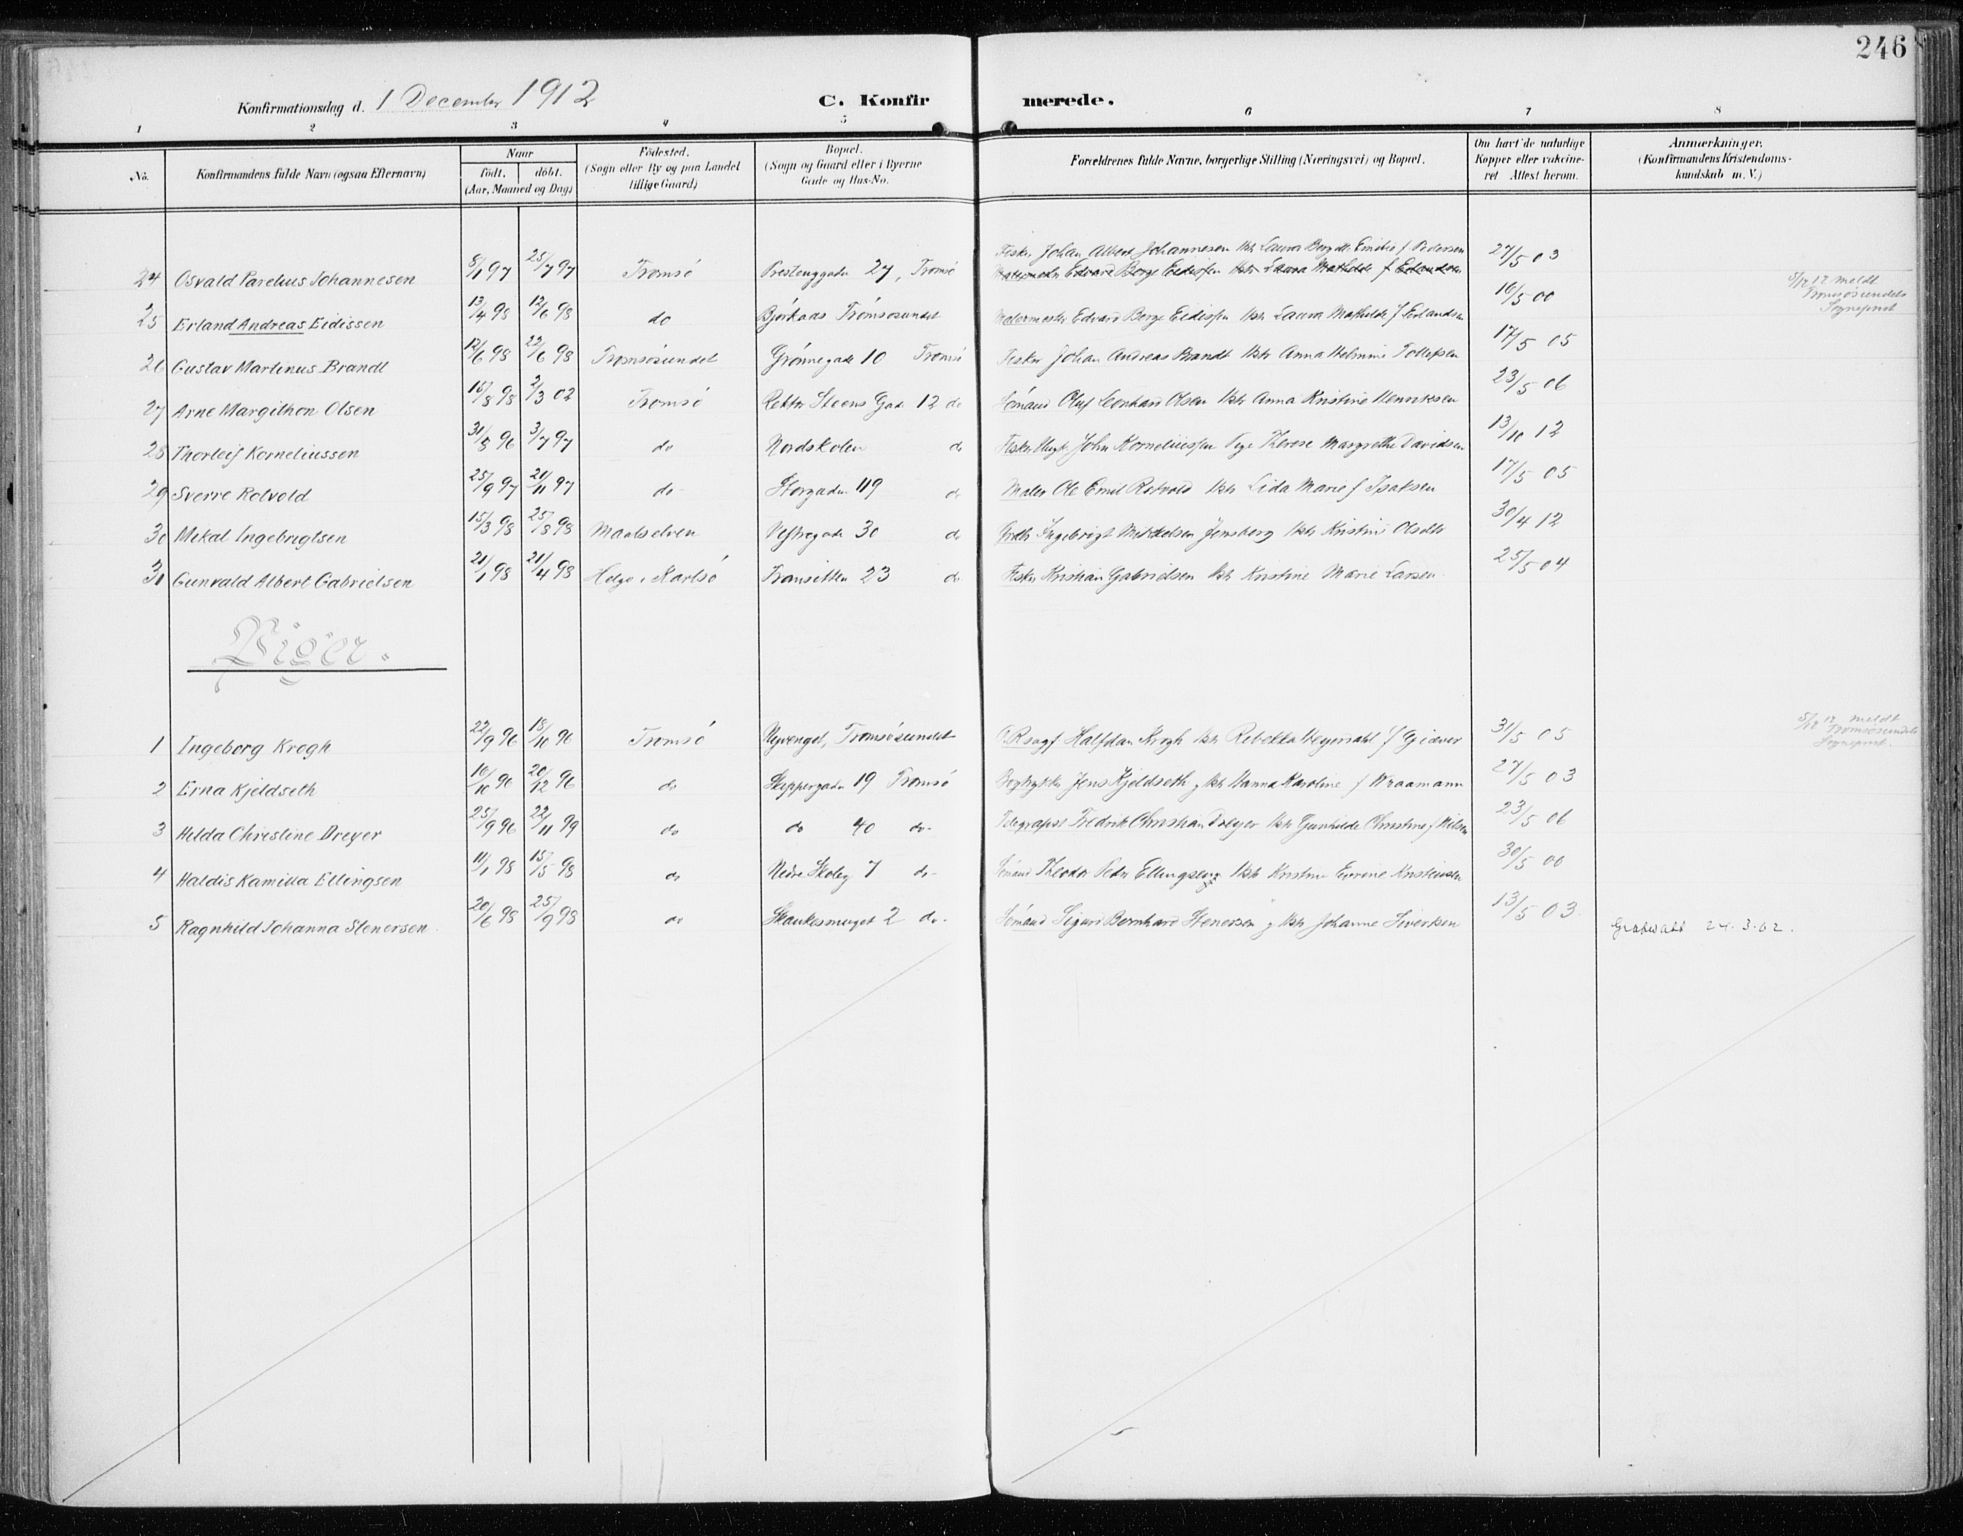 246
Konfirmationsdag d. 1 December 1912
C. Konfirmerede.
1 2 3 4 5 6 7 8
No. Konfirmandens fulde Navn (ogsaa Efternavn) Naar födt. döbt. (Aar, Maaned og Dag) Födested. (Sogn eller By og paa Landet tillige Gaard) Bopæl. (Sogn og Gaard eller i Byerne Gade og Hus-No. Forældrenes fulde Navne, borgerlige Stilling (Næringsvei) og Bopæl. Om havt de naturlige Kopper eller vaksineret Attest herom. Anmærkninger. (Konfirmandens Kristendomskundskab m. V.)
24 Osvald Parelius Johannesen 8/1 97 25/7 97 Tromsö 27, Tromsö Fisker Johan Albert Johannesen Hstr Laura Emilie f Pedersen 27/5 03
Edvard Berge Eidissen Hstr Laura Mathilde f Erlandsen
25 Erland Andreas Eidissen 13/4 98 12/6 98 do Bjørkaas Tromsøsundet Malermester Edvard Berge Eidissen Hstr Laura Mathilde f Erlandsen 16/5 00 5/12 12 meldt Tromsøsundets Sogneprest
26 Gustav Martinus Brandt 12/6 98 22/6 98 Tromsøsundet Grønnegade 10 Tromsö Fisker Johan Andreas Brandt Hstr Anna Tollefsen 17/5 05
27 Arne Margithon Olsen 15/8 98 2/3 02 Tromsö Rektor Steens Gade 12 do Sömand Oluf Leonhard Olsen Hstr Anna Kristine Henriksen 23/5 06
28 Thorleif Korneliussen 31/8 96 3/7 97 do Nordskolen do John Korneliussen Pige Therese Margrethe Davidsen 13/10 12
29 Sverre Rotvold 25/9 97 21/11 97 do Storgaden 119 do Maler Ole Emil Rotvold Hstr Lida Marie f Isaksen 17/5 05
30 Mikal Ingebrigtsen 15/3 98 25/8 98 Maalselven Vestregade 30 do Ingebrigt Mikkelsen Hstr Kristine Olsdtr 30/4 12
31 Gunvald Albert Gabrielsen 21/1 98 21/4 98 Helgö i Karlsö 23 do Fisker Kristian Gabrielsen Hstr Kristine Marie Larsen 25/5 04
Piger.
1 Ingeborg Krogh 22/9 96 18/10 96 Tromsö Tromsösundet O.R.sagf Halfdan Krogh Hstr Rebekka f Gjæver 31/5 05 5/12 12 meldt Tromsøsundets Sogneprest.
2 Erna Kjeldseth 16/10 96 20/12 96 do Skippergaden 19 Tromsö Bogtrykker Jens Kjeldseth g Hstr Hanna Karoline f Wraamann 27/5 03
3 Helda Christine Dreyer 25/9 96 22/11 99 do do 40 do Telegrafist Fredrik Christian Dreyer Hstr Gunhilde Christine f Nilsen 23/5 06
4 Haldis Kamilla Ellingsen 11/1 98 15/5 98 do Nedre Skoleg 7 do Sömand Theodor Peder Ellingsen Hstr Kristine Kristiansen 30/5 00
5 Ragnhild Johanna Stenersen 20/6 98 25/9 98 do Skankesmuget 2 do Sömand Sigurd Bernhard Stenersen g Hstr Johanne Sivertsen 13/5 03 24.3.02.